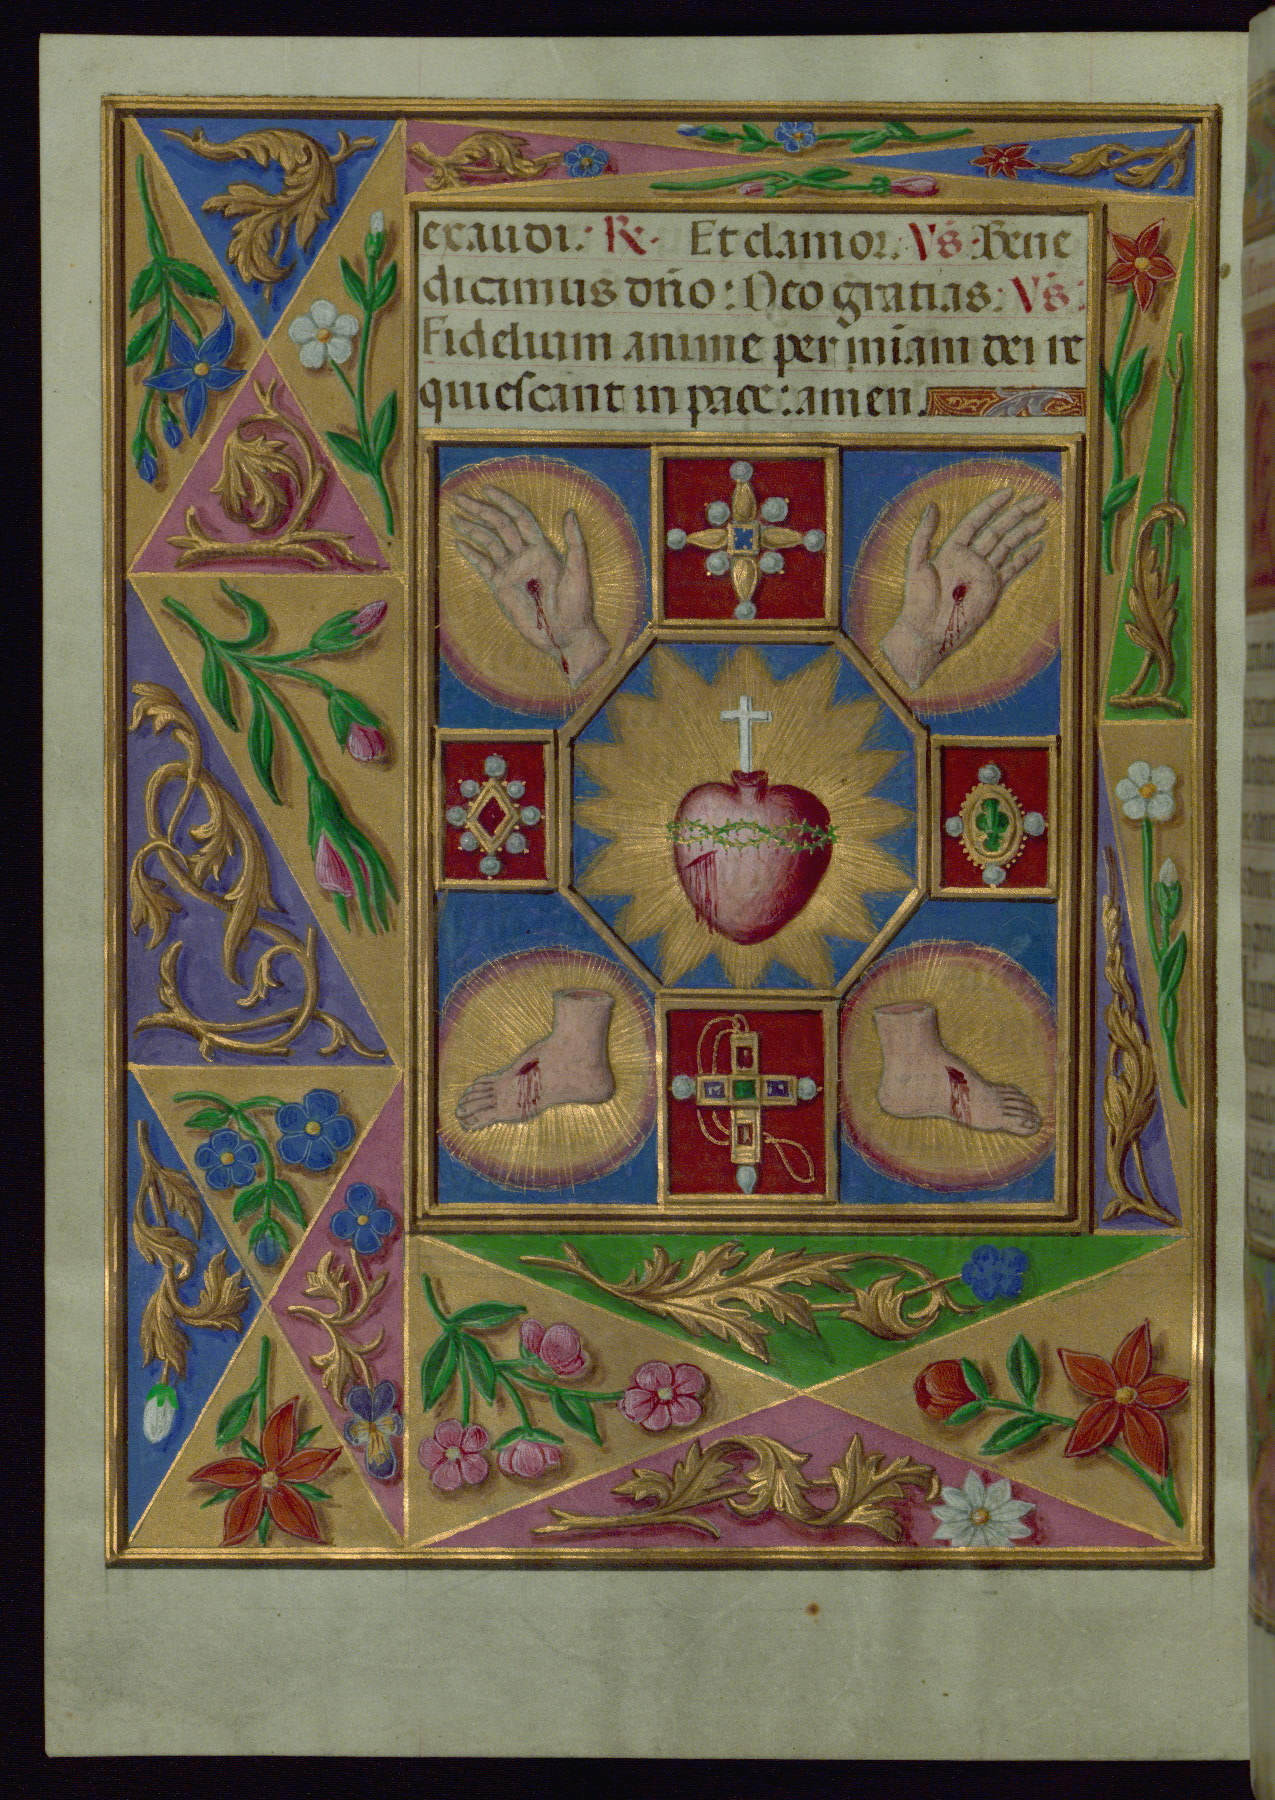 exaudi. R. Et clamor. Vs. Bene
dicamus dn̄o: Deo gratias. Vs:
Fidelium anime per miā̄m dei re
quiescant in pace: amen.